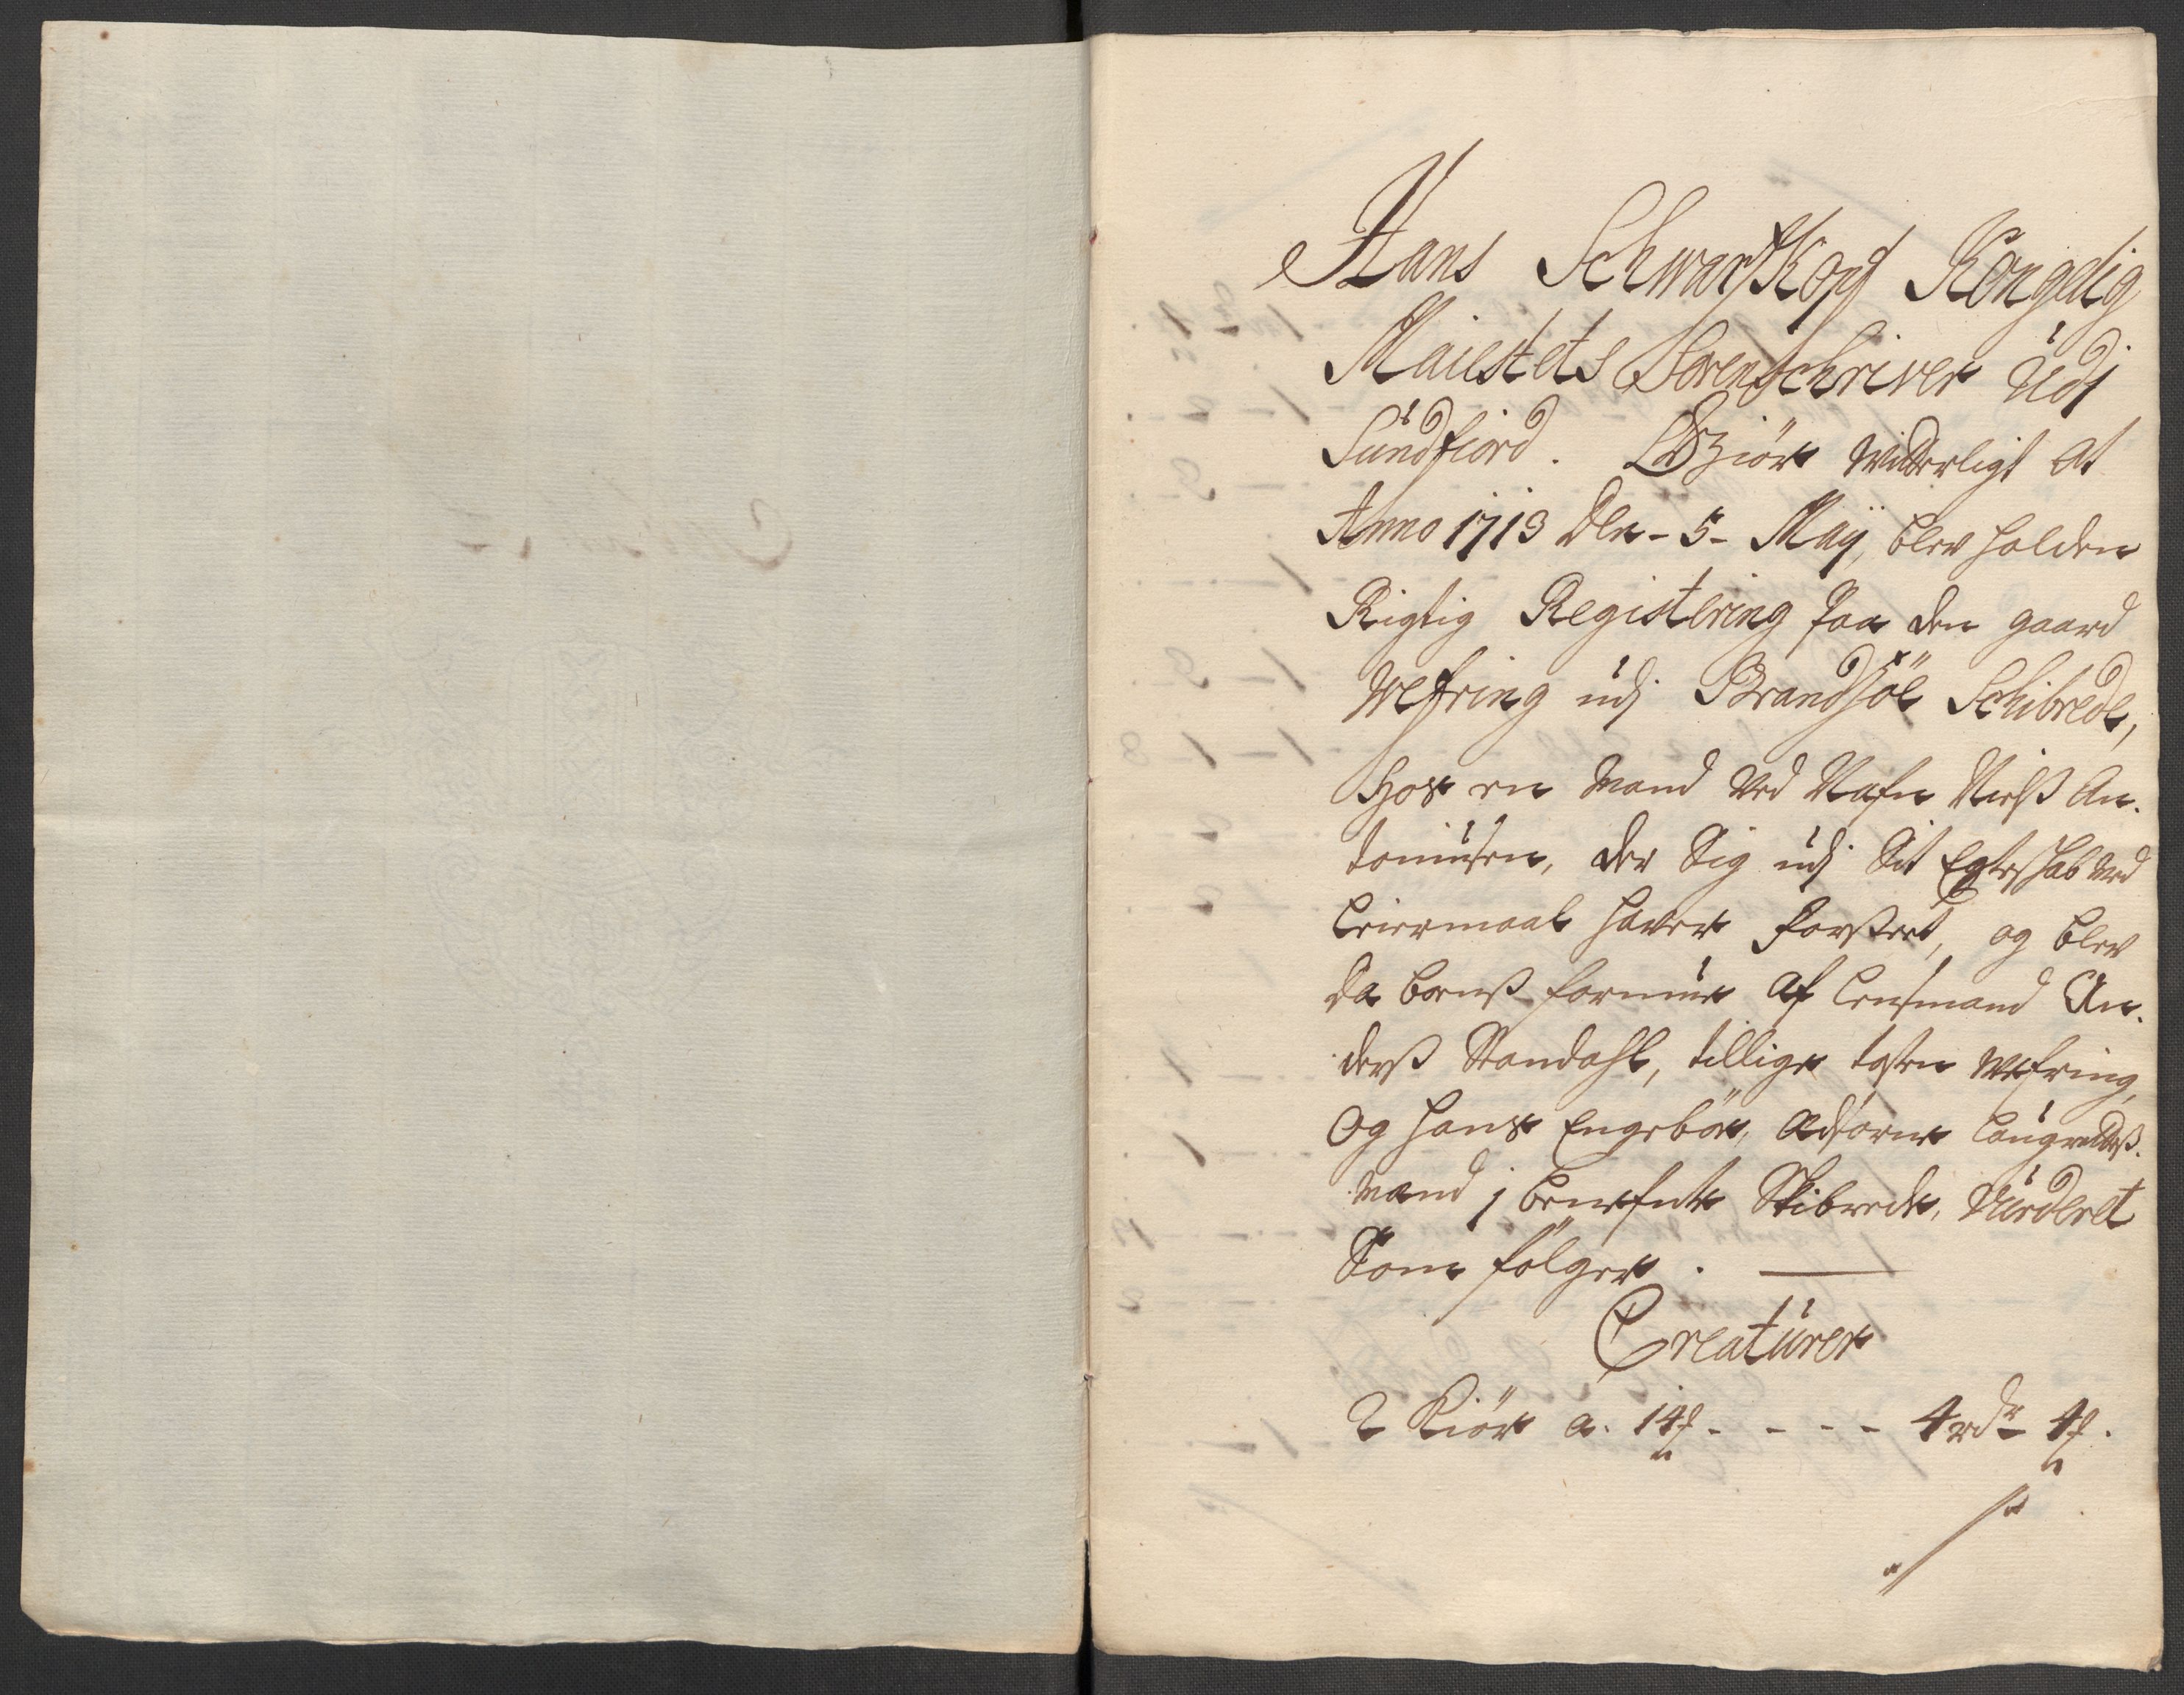 Hans Schwartzkopf Kongelig
Maiestets Sorenschriver Udj
Sundfiord. Giör Witterligt at
Anno 1713 den - 5 - Maij, blev holden
Rigtig Registering paa den gaard
Wefring udj Brandsöe Schibrede,
Hos en Mand ved Nafn Nielß An-
toniusen, der Sig udj Sit Egteschab med
Leiermaal haver forseet, og blev
da hanß formue af Lensmand An-
derß Standahl, tillige Wefring,
Og Hans Engebøe, Edsorne Laugrettes-
mænd j benefnte Skibrede, Vurderet
Som følger.
Creaturer
2 Kiör a. 14 ℳ - - - - 4 rdr 4 ℳ.